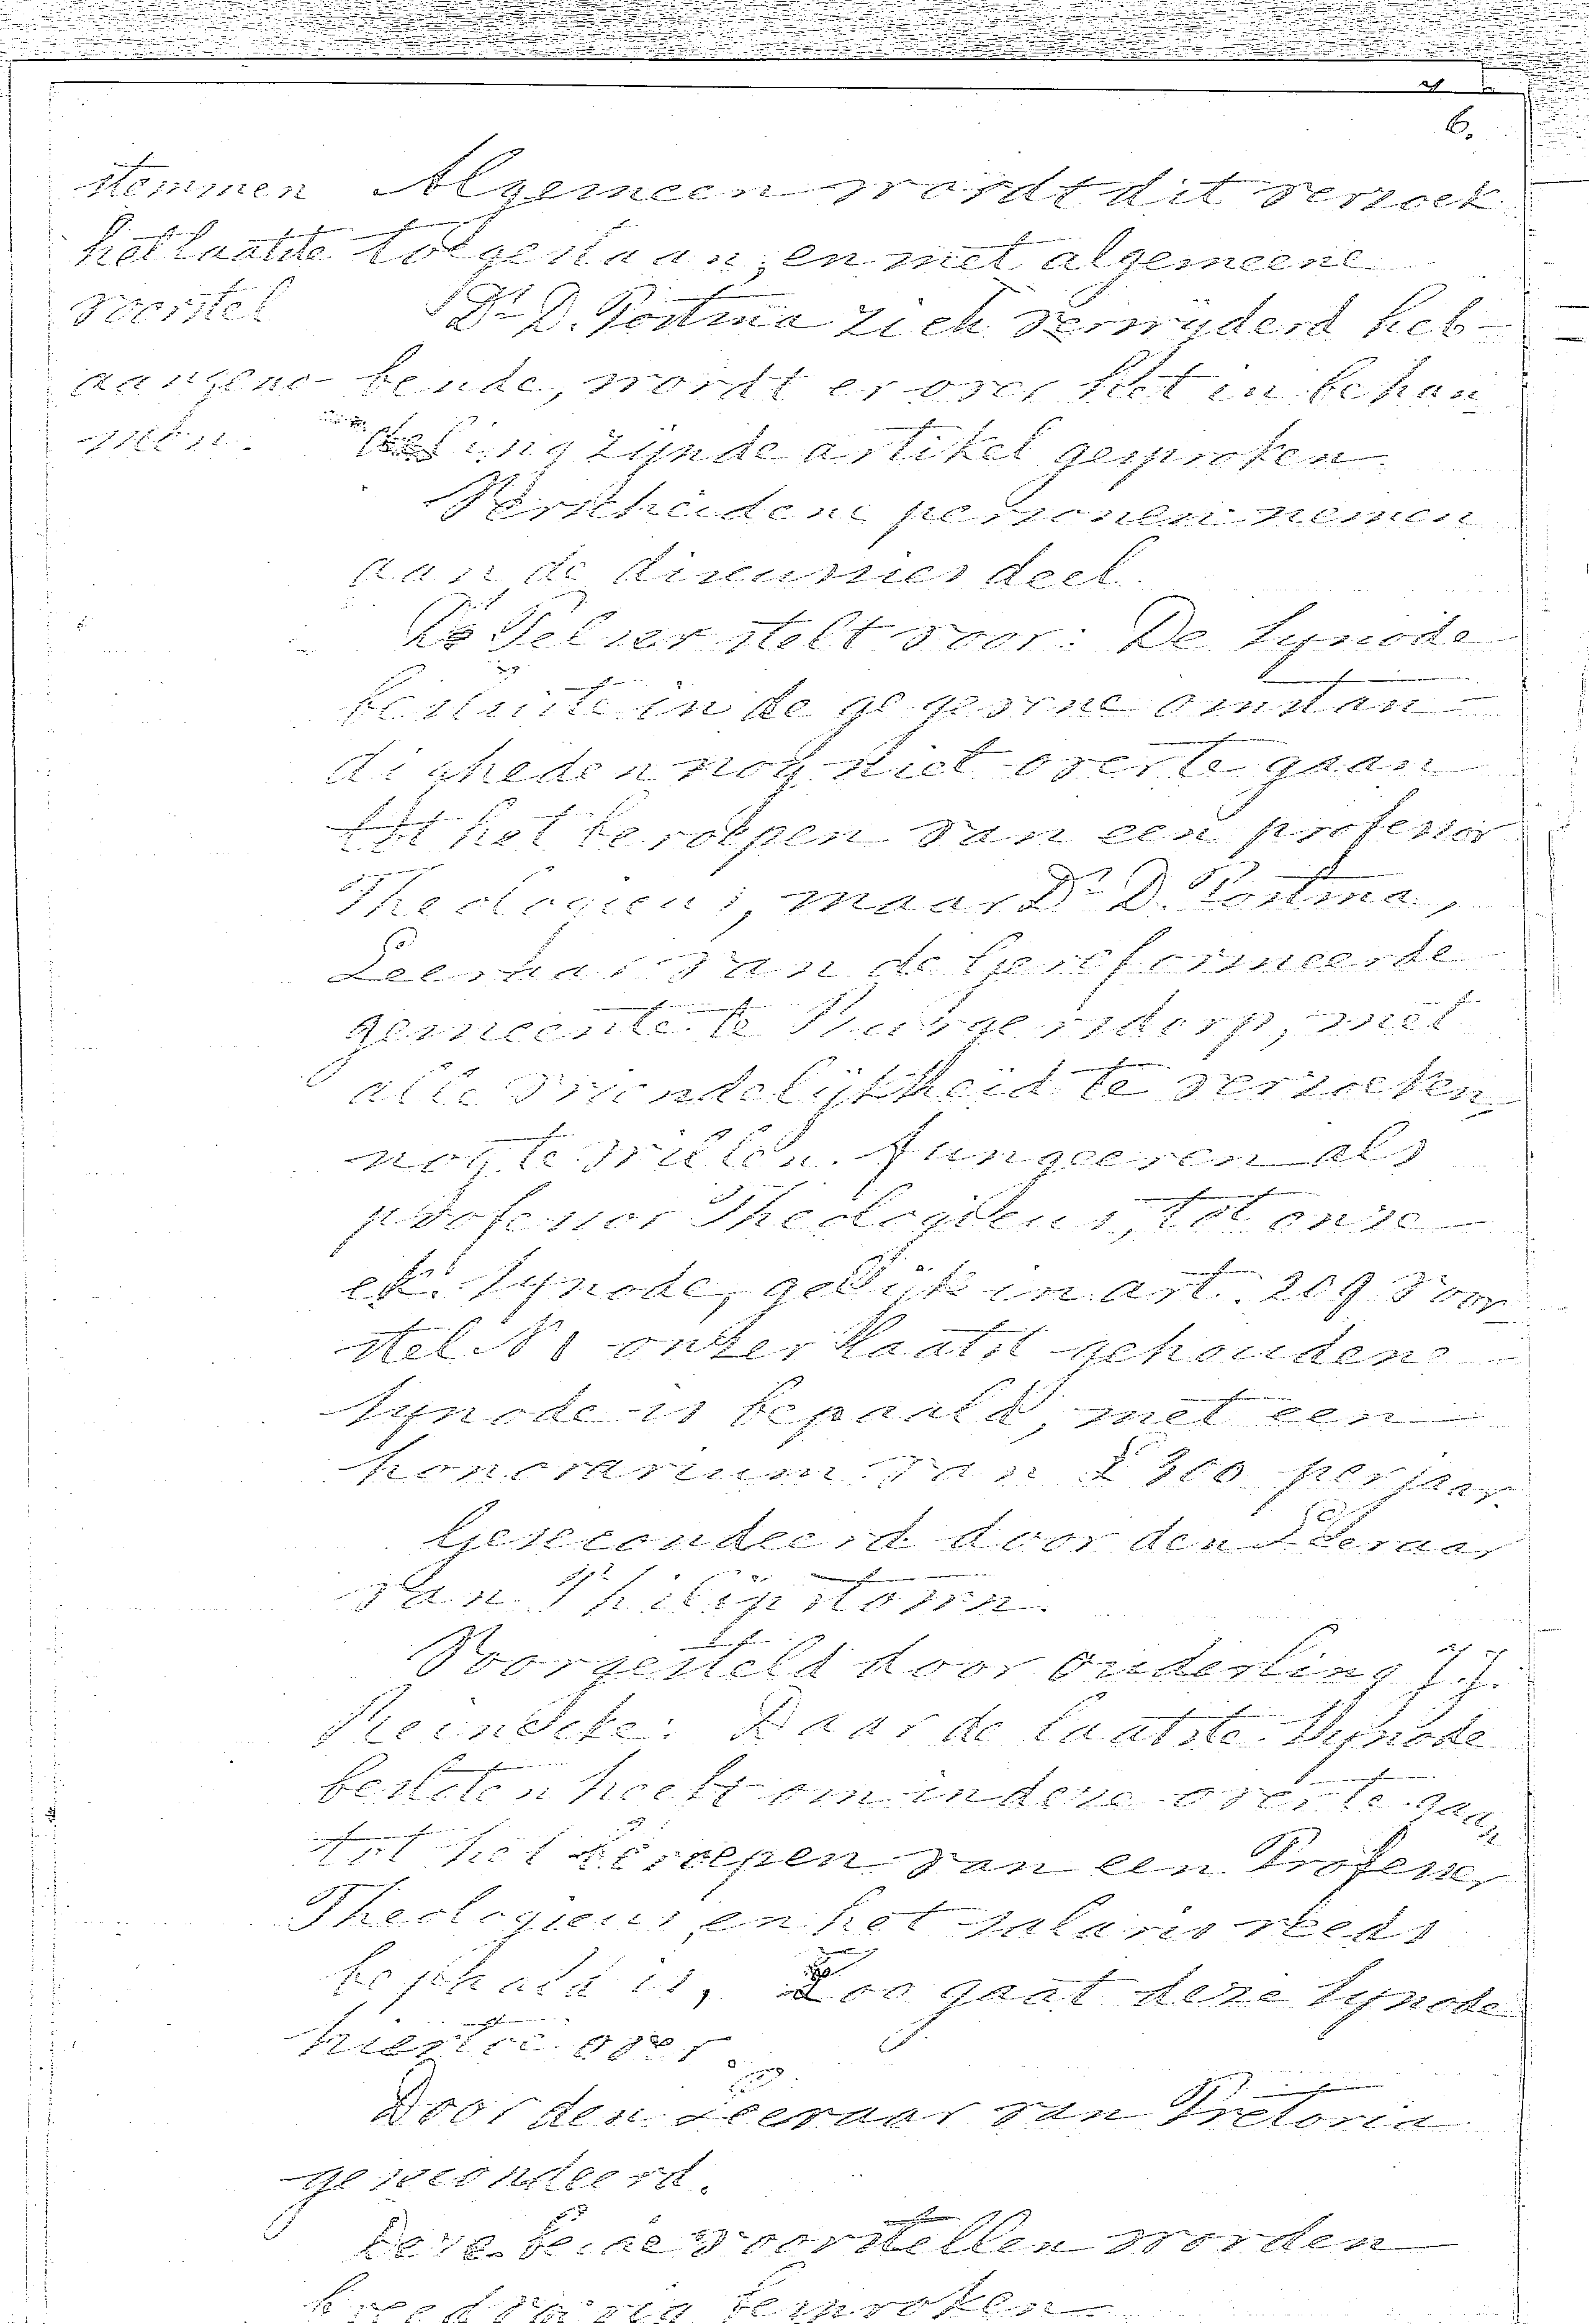 6.
stemmen
het laatste
voorstel
aangeno-
men.
Algemeen wordt dit verzoek
toegestaan, en met algemeene
Dr D. Postma zich verwijderd heb-
bende, wordt er over het in behan
deling zijnde artikel gesproken.
Verscheidene personen nemen
aan de discussies deel.
stelt voor: De Synode
besluite in de gegevene omstan-
digheden nog niet over te gaan
tot het beroepen van een professor
Theologicus, maar Dr D. Postma,
Leeraar van de Gereformeerde
gemeente te Burgersdorp, met
alle vriendelijkheid te verzoeken,
nog te willen fungeeren als
professor Theologicus, tot onze
e.k. Synode, gelijk in art. 209 Voor
stel No onzer laatst gehoudene
Synode is bepaald, met een
honorarium van £ 300 per jaar.
Gesecondeerd door den Leeraar
van Philipstown.
Voorgesteld door ouderling J.J.
Reinecke: Daar de laatste Synode
besloten heeft om in deze over te gaan
tot het beroepen van een Professor
Theologicus, en het salaris reeds
bepaald is, Zoo gaat deze Synode
hiertoe over.
Door den Leeraar van Pretoria
gesecondeerd.
Deze beide voorstellen worden
breedvoerig besproken